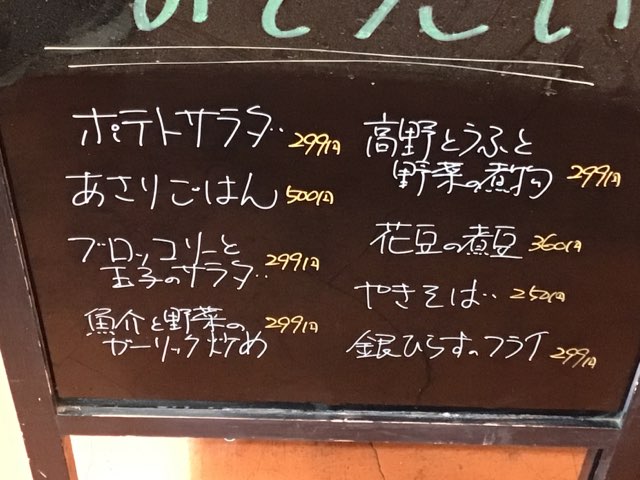 ポテトサラダ‥299円
あさりごはん 500円
ブロッコリーと
玉子のサラダ‥299円
魚介と野菜の 299円
ガーリック炒め
高野とうふと
野菜の煮物 299円
花豆の煮豆 360円
やきそば‥250円
銀ひらすのフライ 299円